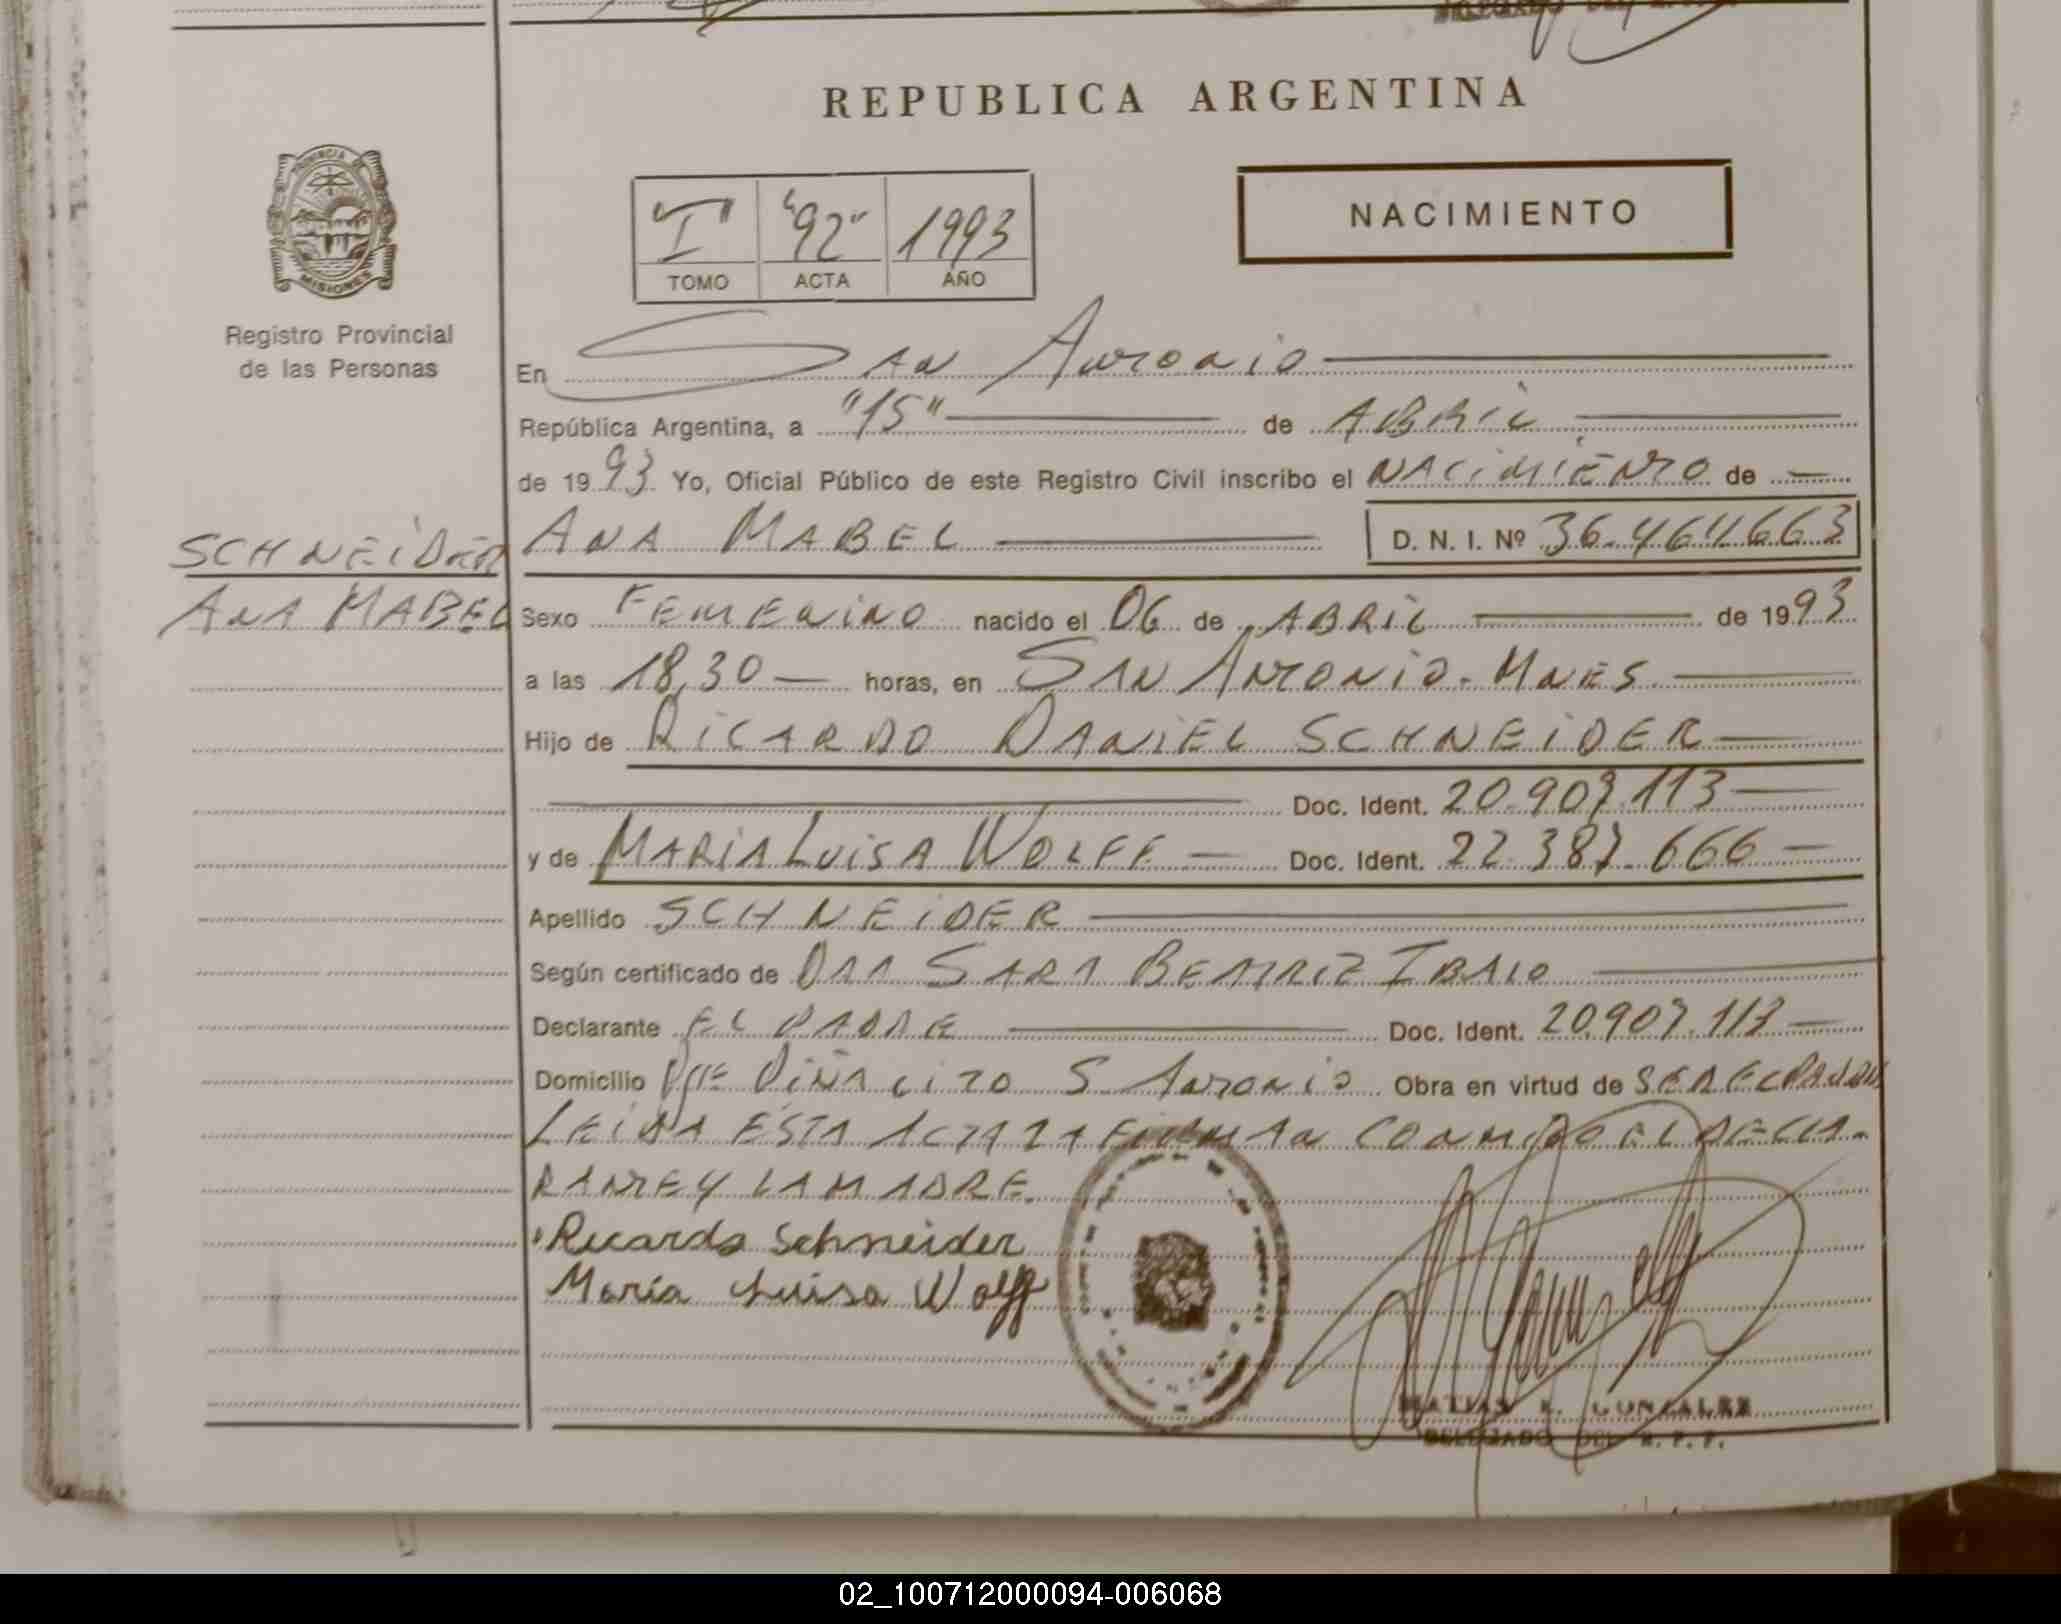 REPUBLICA ARGENTINA
PROVINCIA DE
MISIONES
Registro Provincial
de las Personas
"I" "92" 1993
TOMO ACTA AÑO
NACIMIENTO
En San Antonio
República Argentina, a "15" de ABRIL
de 1993 Yo, Oficial Público de este Registro Civil inscribo el NACIMIENTO de
SCHNEIDER
ANA MABEL
ANA MABEL D. N. I. Nº 36.464.663
Sexo FEMENINO nacido el 06 de ABRIL de 1993
a las 18,30 horas, en SAN ANTONIO - MNES
Hijo de RICARDO DANIEL SCHNEIDER
Doc. Ident. 20.909.113
y de MARIA LUISA WOLFF Doc. Ident. 22.387.666
Apellido SCHNEIDER
Según certificado de DRA SARA BEATRIZ
Declarante EL PADRE Doc. Ident. 20.909.113
Domicilio S Antonio Obra en virtud de
LEIDA ESTA ACTA LA FIRMAN CONMIGO EL DECLA-
RANTE Y LA MADRE.
Ricardo Schneider
María Luisa Wolff
MATIAS R. GONZALEZ
DELEGADO DEL R. P. P.
02_100712000094-006068